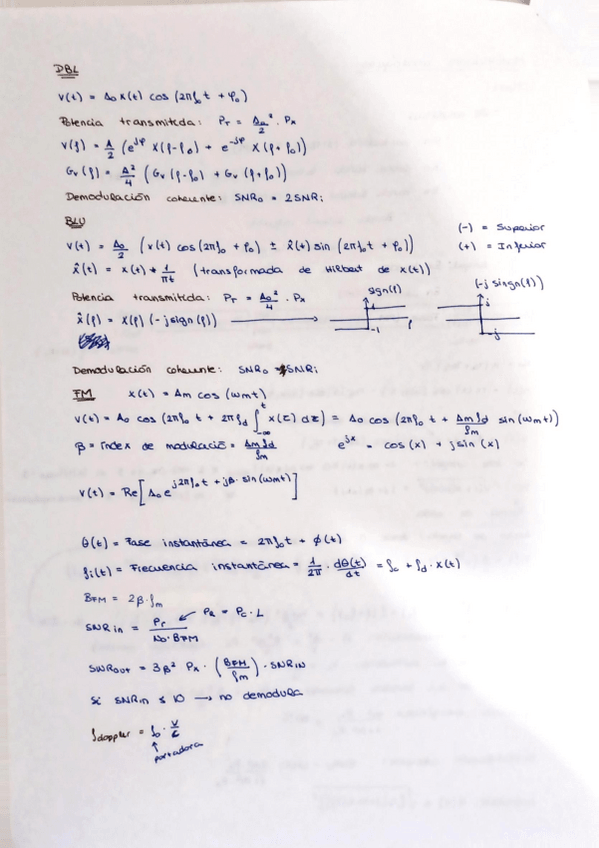 DBL
v(t) = A₀ x(t) cos (2πf₀t + φ₀)
Potencia transmitida: P_T = A₀²/2 · Pₓ
V(f) = A/2 (e^{jφ} X(f-f₀) + e^{-jφ} X(f+f₀))
G_v(f) = A²/4 (G_v(f-f₀) + G_v(f+f₀))
Demodulación coherente: SNR₀ = 2SNRᵢ
BLU
v(t) = A₀/2 (x(t) cos(2πf₀ + φ₀) ± x̂(t) sin (2πf₀t + φ₀)) (-) = Superior
(+) = Inferior
x̂(t) = x(t) * 1/πt (transformada de Hilbert de x(t))
Potencia transmitida: P_T = A₀²/4 · Pₓ sgn(f) (-j singn(f))
X̂(f) = X(f) (-j sign(f)) → 1 -1 f j -j
Demodulación coherente: SNR₀ = SNRᵢ
FM x(t) = Am cos (ωmt)
v(t) = A₀ cos (2πf₀t + 2πf_d ∫_{-∞}^{t} x(τ) dτ) = A₀ cos (2πf₀t + Am f_d/fm sin (ωmt))
β = índex de modulación = Am f_d/fm e^{jx} = cos(x) + j sin (x)
v(t) = Re[A₀ e^{j2πf₀t + jβ · sin(ωmt)}]
θ(t) = Fase instantánea = 2πf₀t + ϕ(t)
fi(t) = Frecuencia instantánea = 1/2π · dθ(t)/dt = f_c + f_d · x(t)
B_FM = 2β · fm
SNR in = P_r/N₀·B_FM ← P_R = P_C · L
SNR out = 3β² Pₓ · (B_FM/fm) · SNR IN
Si SNR in ≤ 10 → no demodula
f doppler = f₀ · v/c
↑
portadora